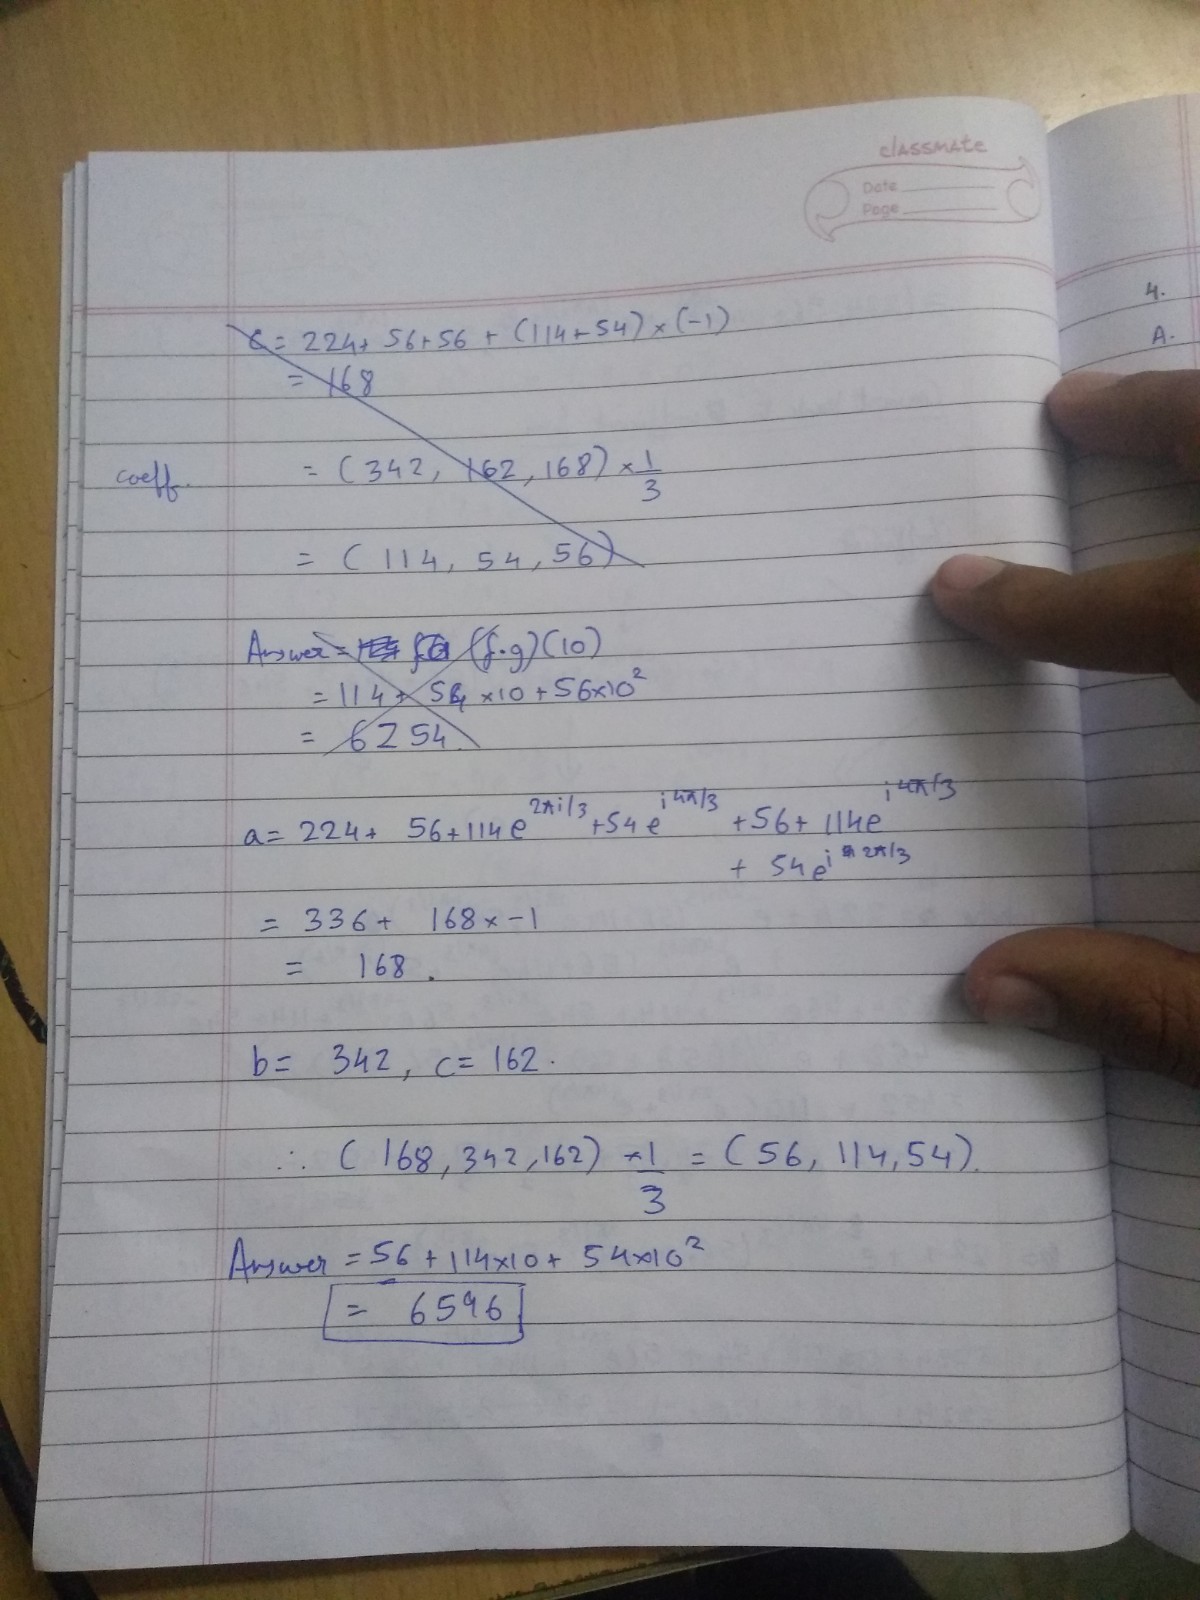 classmate
Date
Page
4.
A.
c = 224 + 56 + 56 + (114 + 54) × (-1)
= 168
coeff. = (342, 162, 168) × 1/3
= (114, 54, 56)
Answer = (f.g)(10)
= 114 + 54 × 10 + 56×10²
= 6254
a = 224 + 56 + 114e^{2πi/3} + 54e^{i4π/3} + 56 + 114e^{i4π/3}
+ 54e^{i2π/3}
= 336 + 168 × -1
= 168.
b = 342, c = 162.
∴ (168, 342, 162) × 1/3 = (56, 114, 54).
Answer = 56 + 114×10 + 54×10²
= 6596